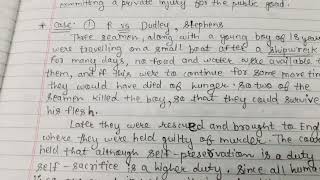 committing a private injury for the public good.
* Case: ① R vs Dudley, Stephens
Three seamen, along with a young boy of 18 years
were travelling on a small boat after a shipwreck.
For many days, no food and water were available to
them, and if this were to continue for some more time
they would have died of hunger. So two of the
seamen killed the boy, so that they could survive
his flesh.
Later they were rescued and brought to Eng
where they were held guilty of murder. The court
held that although self-preservation is a duty
self-sacrifice is a higher duty, since all huma